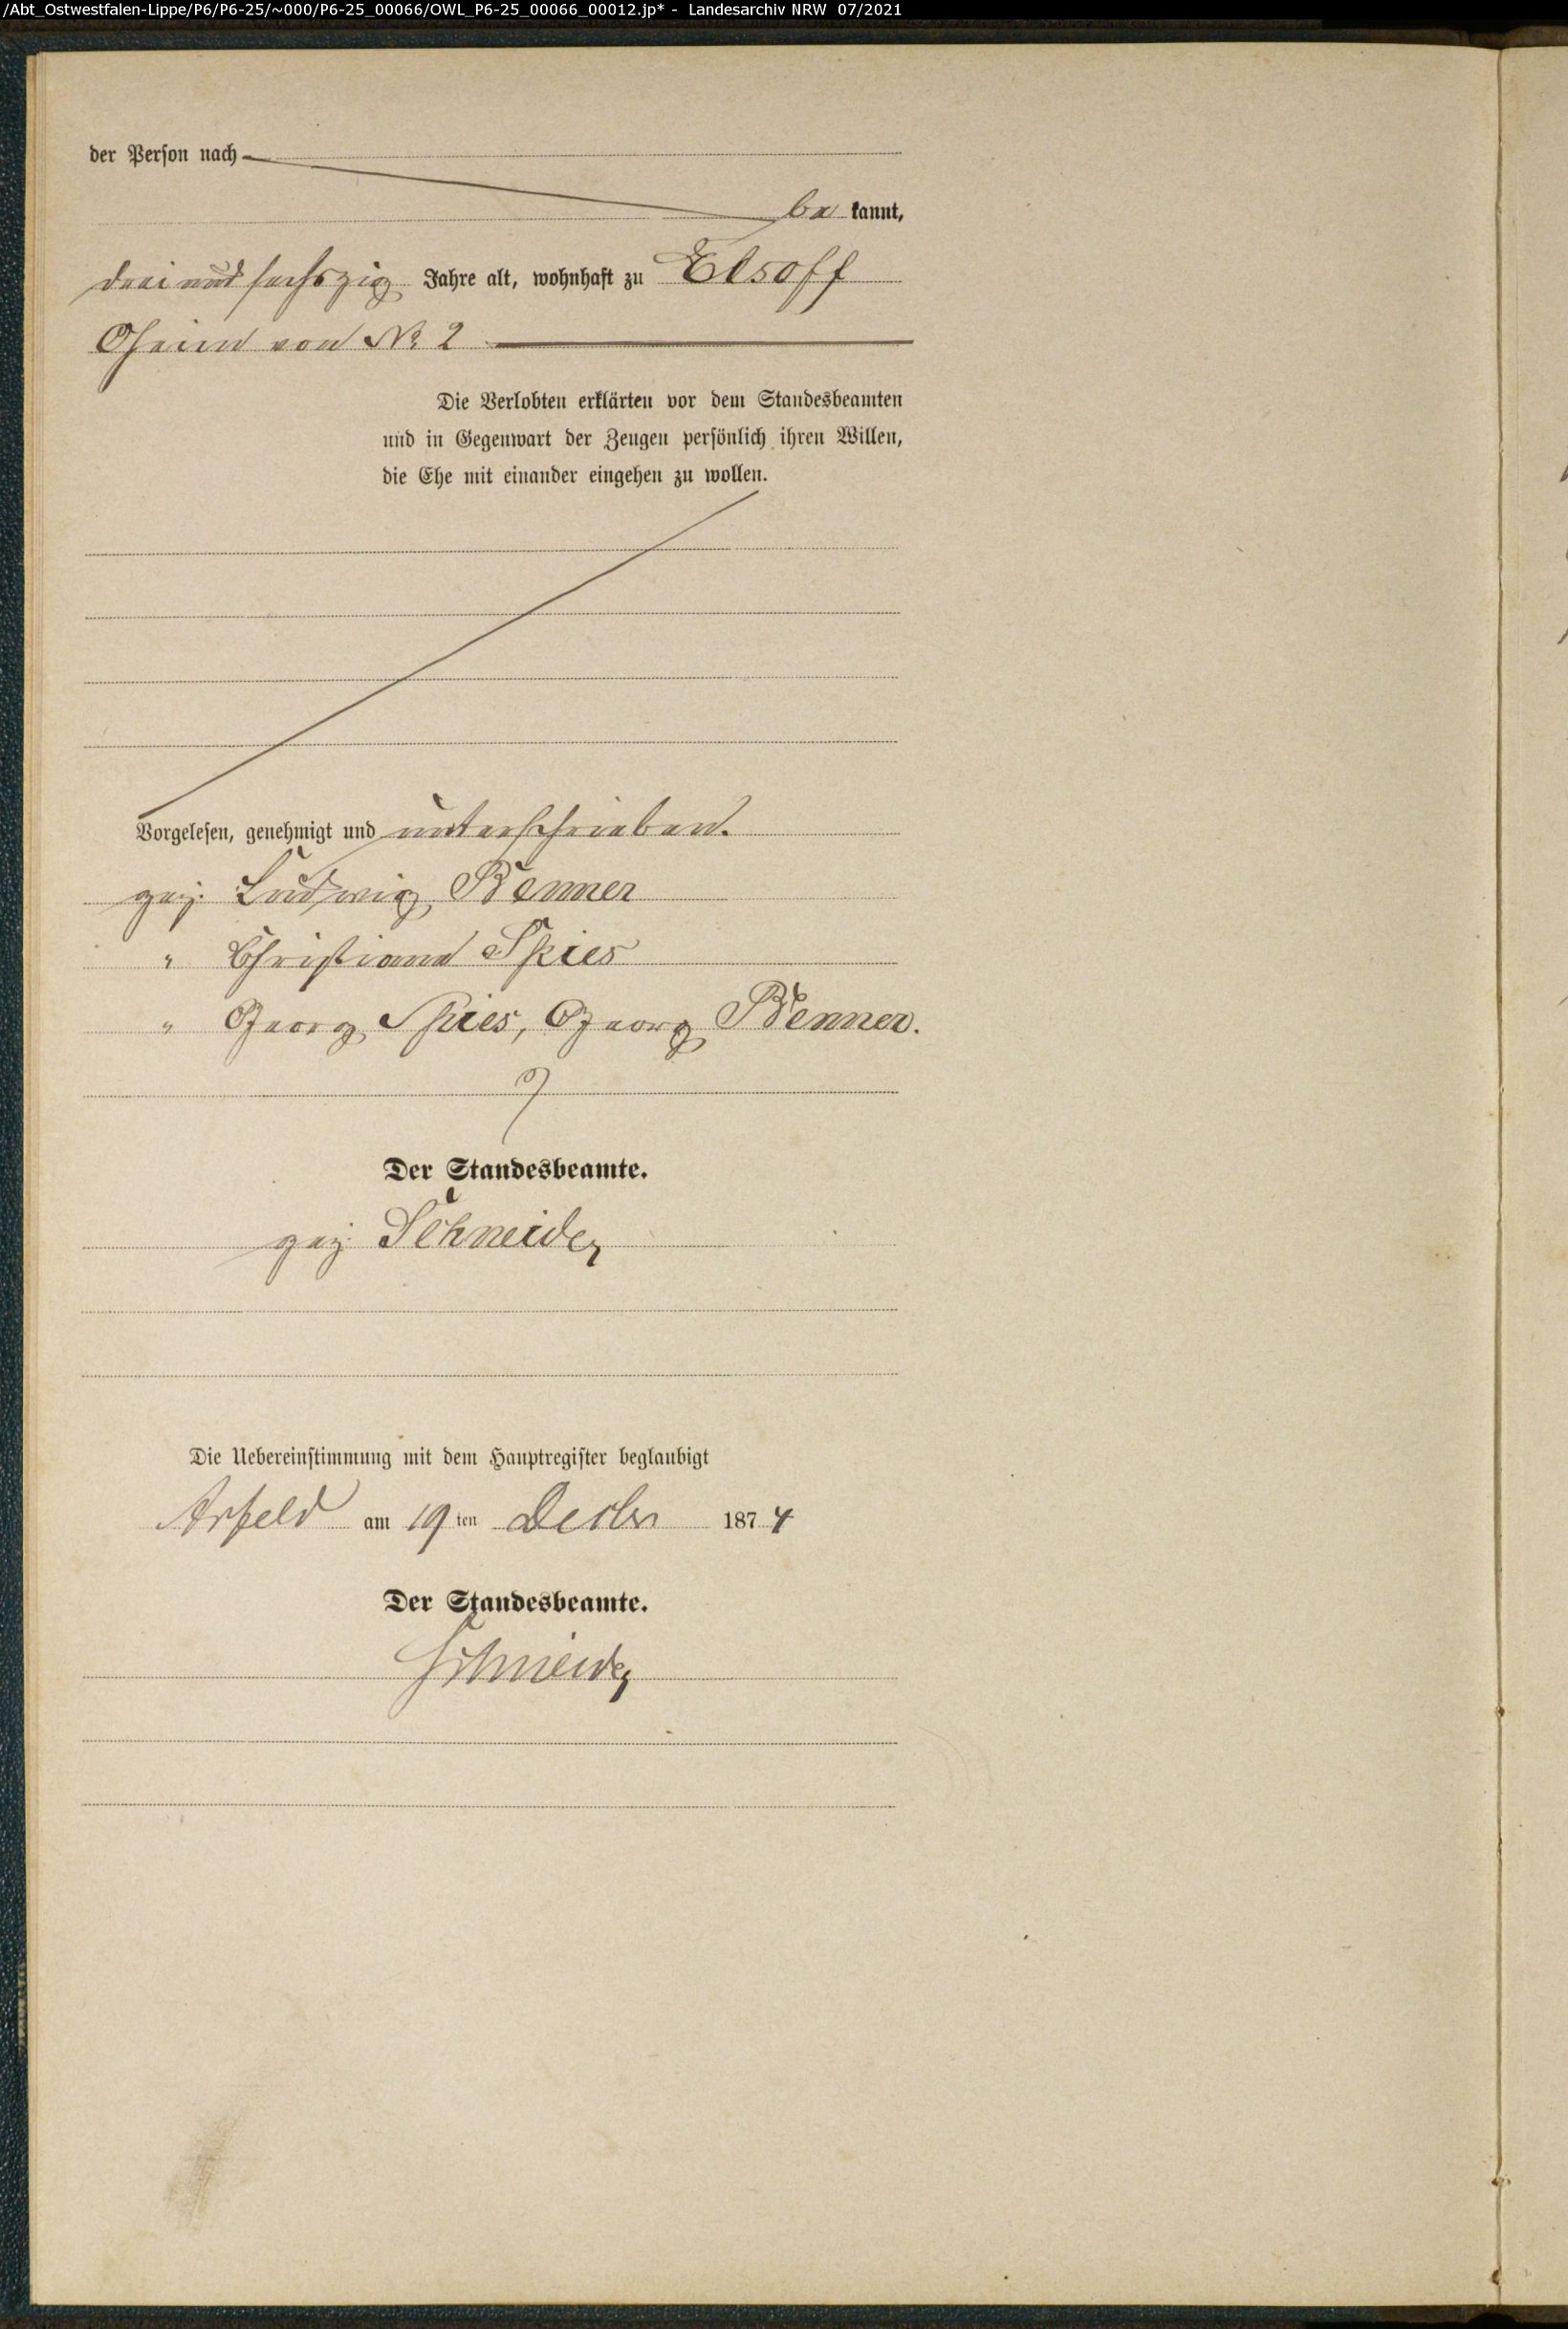 /Abt_Ostwestfalen-Lippe/P6/P6-25/~000/P6-25_00066/OWL_P6-25_00066_00012.jp* - Landesarchiv NRW 07/2021
der Person nach
be kannt,
drei und sechszig Jahre alt, wohnhaft zu Elsoff
Oheim von № 2
Die Verlobten erklärten vor dem Standesbeamten
und in Gegenwart der Zeugen persönlich ihren Willen,
die Ehe mit einander eingehen zu wollen.
Vorgelesen, genehmigt und unterschrieben.
gez. Ludwig Benner
" Christiane Spies
" Georg Spies, Georg Benner.
Der Standesbeamte.
gez. Schneider
Die Uebereinstimmung mit dem Hauptregister beglaubigt
Arfeld am 19 ten Decbr 1874
Der Standesbeamte.
Schneider